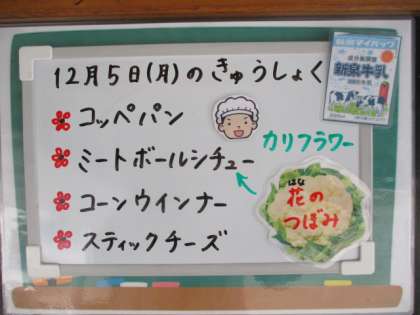 12月5日(月)のきゅうしょく
コッペパン
ミートボールシチュー
コーンウインナー
スティックチーズ
カリフラワー
はな
花の
つぼみ
新泉牛乳